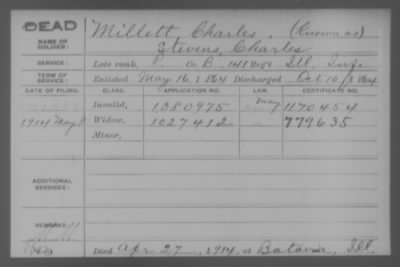 DEAD
Millett, Charles, (Known as)
NAME OF SOLDIER:
Stevens, Charles
SERVICE:
Late rank, P Co B, 141 Reg't Ill. Inf.
TERM OF SERVICE:
Enlisted May 16, 1864 Discharged Oct 10, 1864
DATE OF FILING. CLASS. APPLICATION NO. LAW. CERTIFICATE NO.
Invalid, 1380975 May 1170454
1914 May 8 Widow, 1027412 " 779635
Minor,
ADDITIONAL SERVICES:
REMARKS:
Died Apr 27, 1914, at Batavia, Ill.